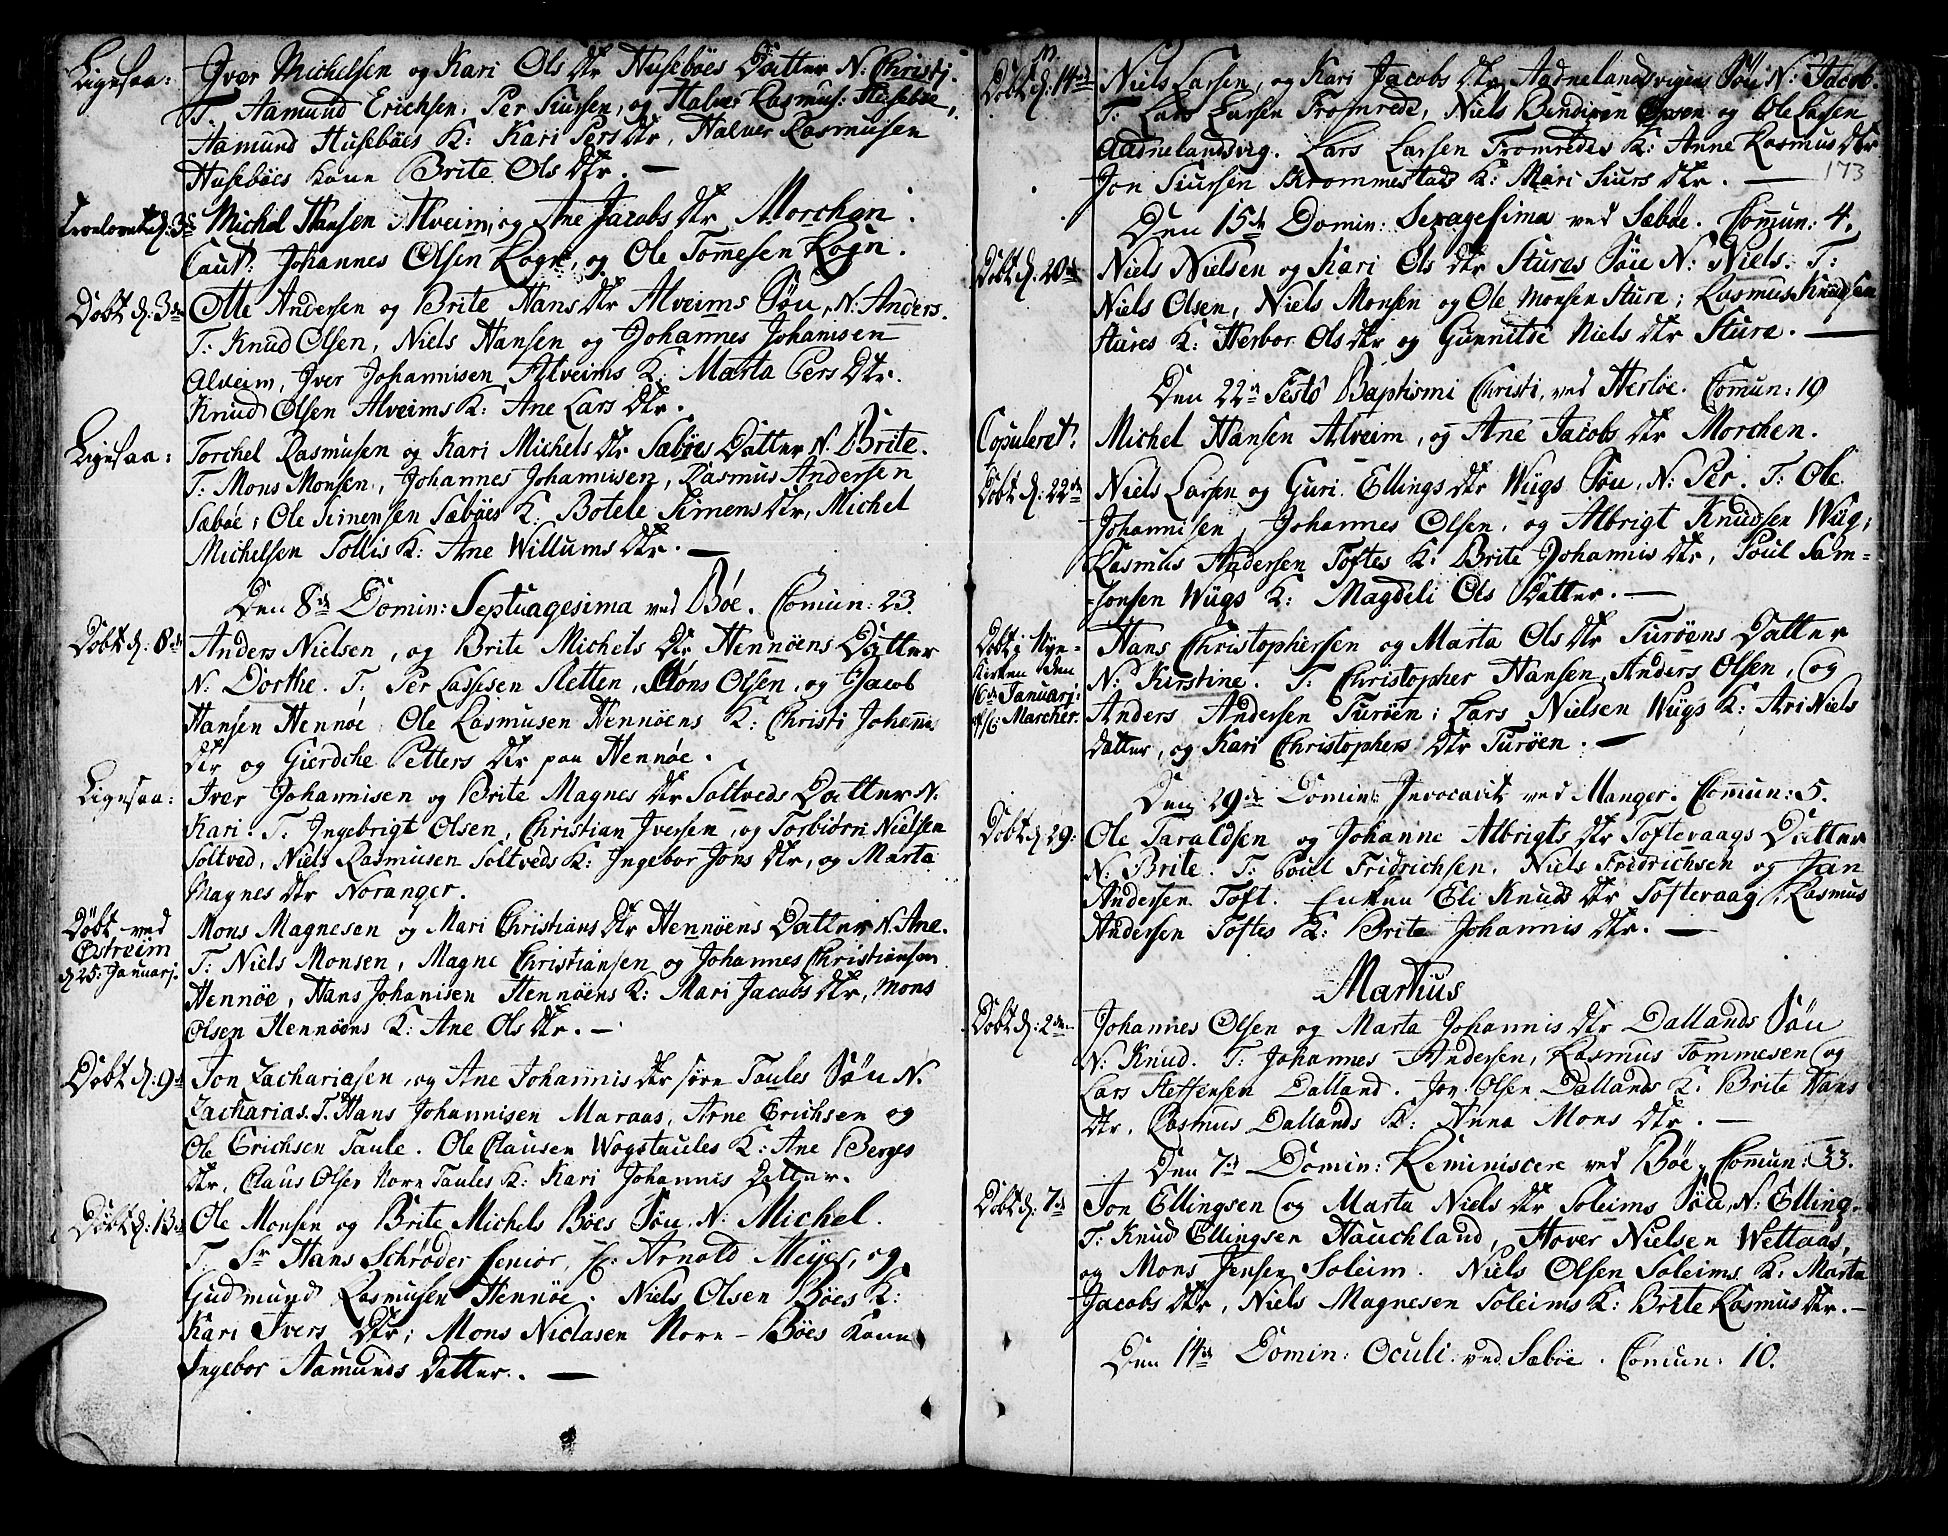 Ligesaa: Iver Michelsen og Kari Ols Dtr Huseböes Datter N: Christj.
T. Aamund Erichsen, Per Siursen, og Halver Rasmus: Huseböe,
Aamund Huseböes K: Kari Pers Dtr, Halver Rasmusen
Huseböes Kone Brite Ols Dtr. —
Trolovet d: 3de Michel Hansen Alveim, og Ane Jacobs Dtr Morchen.
Caut: Johannes Olsen Rogn, og Ole Tomesen Rogn.
Döbt d: 3de Olle Andersen og Brite Hans Dtr Alveims Sön, N: Anders.
T: Knud Olsen, Niels Hansen og Johannes Johannisen
Alveim, Iver Johannisen Alveims K: Marta Pers Dtr.
Knud Olsen Alveims K: Ane Lars Dtr.
Ligesaa: Torchel Rasmusen og Kari Michels Dtr Sæböes Datter N: Brite.
T: Mons Monsen, Johannes Johannisen, Rasmus Andersen
Sæböe; Ole Simensen Sæböes K: Botele Simens Dtr, Michel
Michelsen Tollis K: Ane Willums Dtr. —
Den 8de Domin: Septuagesima ved Böe. Comun: 23.
Döbt d: 8de Anders Nielsen, og Brite Michels Dtr Hennöens Datter
N: Dorthe. T: Per Lassesen Sletten, Mons Olsen, og Jacob
Hansen Hennöe, Ole Rasmusen Hennöens K: Christi Johannis
Dtr og Gierdche Petters Dtr paa Hennöe.
Ligesaa: Iver Johannisen og Brite Magnes Dtr Soltveds Datter N:
Kari. T: Ingebrigt Olsen, Christian Iversen, og Torbiörn Nielsen
Soltved, Niels Rasmusen Soltveds K: Ingebor Jons Dtr, og Marta
Magnes Dtr Noranger.
Döbt ved
Østreim
d 25: Januarj. Mons Magnesen og Mari Christians Dtr Hennöens Datter N: Ane.
T: Niels Monsen, Magne Christiansen og Johannes Christiansen
Hennöe, Hans Johanisen Hennöens K: Mari Jacobs Dtr, Mons
Olsen Hennöens K: Ane Ols Dtr. —
Döbt d: 9de Jon Zachariasen, og Ane Johannis Dtr söre Taules Sön N.
Zacharias. T. Hans Johannisen Maraas, Arne Erichsen og
Ole Erichsen Taule. Ole Clausen Wogstaules K: Ane Berges
Dtr, Claus Olsen Nore Taules K: Kari Johannis Datter.
Döbt d: 13de Ole Monsen og Brite Michels Böes Sön, N: Michel.
T. Sr Hans Schröder Senior, Arnold Meyer, og
Gudmund Rasmusen Hennöe. Niels Olsen Böes K:
Kari Ivers Dtr; Mons Niclasen Nore-Böes Kone
Ingebor Aamunds Datter. —
Döbt d: 14de Niels Larsen, og Kari Jacobs Dtr Aadnelandsvigens Sön N: Jacob.
T: Lars Larsen Fromrede, Niels og Ole Larsen
Aadnelandsvig. Lars Larsen Fromredes K: Anne Rasmus Dtr
Jon Siursen Krommestads K: Mari Siurs Dtr. — 173
Den 15de Domin: Sexagesima ved Sæböe. Comun: 4.
Döbt d: 20de Niels Nielsen og Kari Ols Dtr Stures Sön N: Niels. T:
Niels Olsen, Niels Monsen og Ole Monsen Sture; Rasmus Knudsen
Stures K: Herbor Ols Dtr og Gunnilde Niels Dtr Sture. —
Den 22de Festo Baptismi Christi, ved Herlöe. Comun: 19
Copuleret. Michel Hansen Alveim, og Ane Jacobs Dtr Morchen.
Döbt d: 22de Niels Larsen og Guri Ellings Dtr Wügs Sön, N: Per. T: Ole
Johannisen, Johannes Olsen, og Albrigt Knudsen Wüg;
Rasmus Andersen Toftes K: Brite Johannis Dtr, Poul Sam-
-sonsen Wügs K: Magdeli Ols Datter. —
Döbt i Nye-
Kirken den
6de Januarj:
Marcher. Hans Christophersen og Marta Ols Dtr Turöens Datter
N: Kirstine. T: Christopher Hansen, Anders Olsen, og
Anders Andersen Turöen; Lars Nielsen Wügs K: Ari Niels
datter, og Kari Christophers Dtr Turöen. —
Den 29de Domin: Invocavit ved Manger. Comun: 5.
Döbt d 29: Ole Taraldsen og Johanne Albrigts Dtr Toftevaags Datter
N: Brite. T: Poul Fridrichsen, Niels Fridrichsen og Jan
Andersen Toft. Enken Eli Knuds Dtr Toftevaag, Rasmus
Andersen Toftes K: Brite Johannis Dtr. —
Martius
Döbt d: 2den Johannes Olsen og Marta Johannis Dtr Dallands Sön
N: Knud. T: Johannes Andersen, Rasmus Tommesen og
Lars Steffensen Dalland. Jon Olsen Dallands K: Brite Hans
Dtr, Rasmus Dallands K: Anna Mons Dtr. —
Den 7de Domin: Reminiscere ved Böe. Comun: 33.
Döbt d: 7de Jon Ellingsen og Marta Niels Dtr Soleims Sön, N: Elling.
T: Knud Ellingsen Hauchland, Hover Nielsen Wettaas,
og Mons Jensen Soleim. Niels Olsen Soleims K: Marta
Jacobs Dtr, Niels Magnesen Soleims K: Brite Rasmus Dtr. —
Den 14de Domin: Oculi ved Sæböe. Comun: 10.